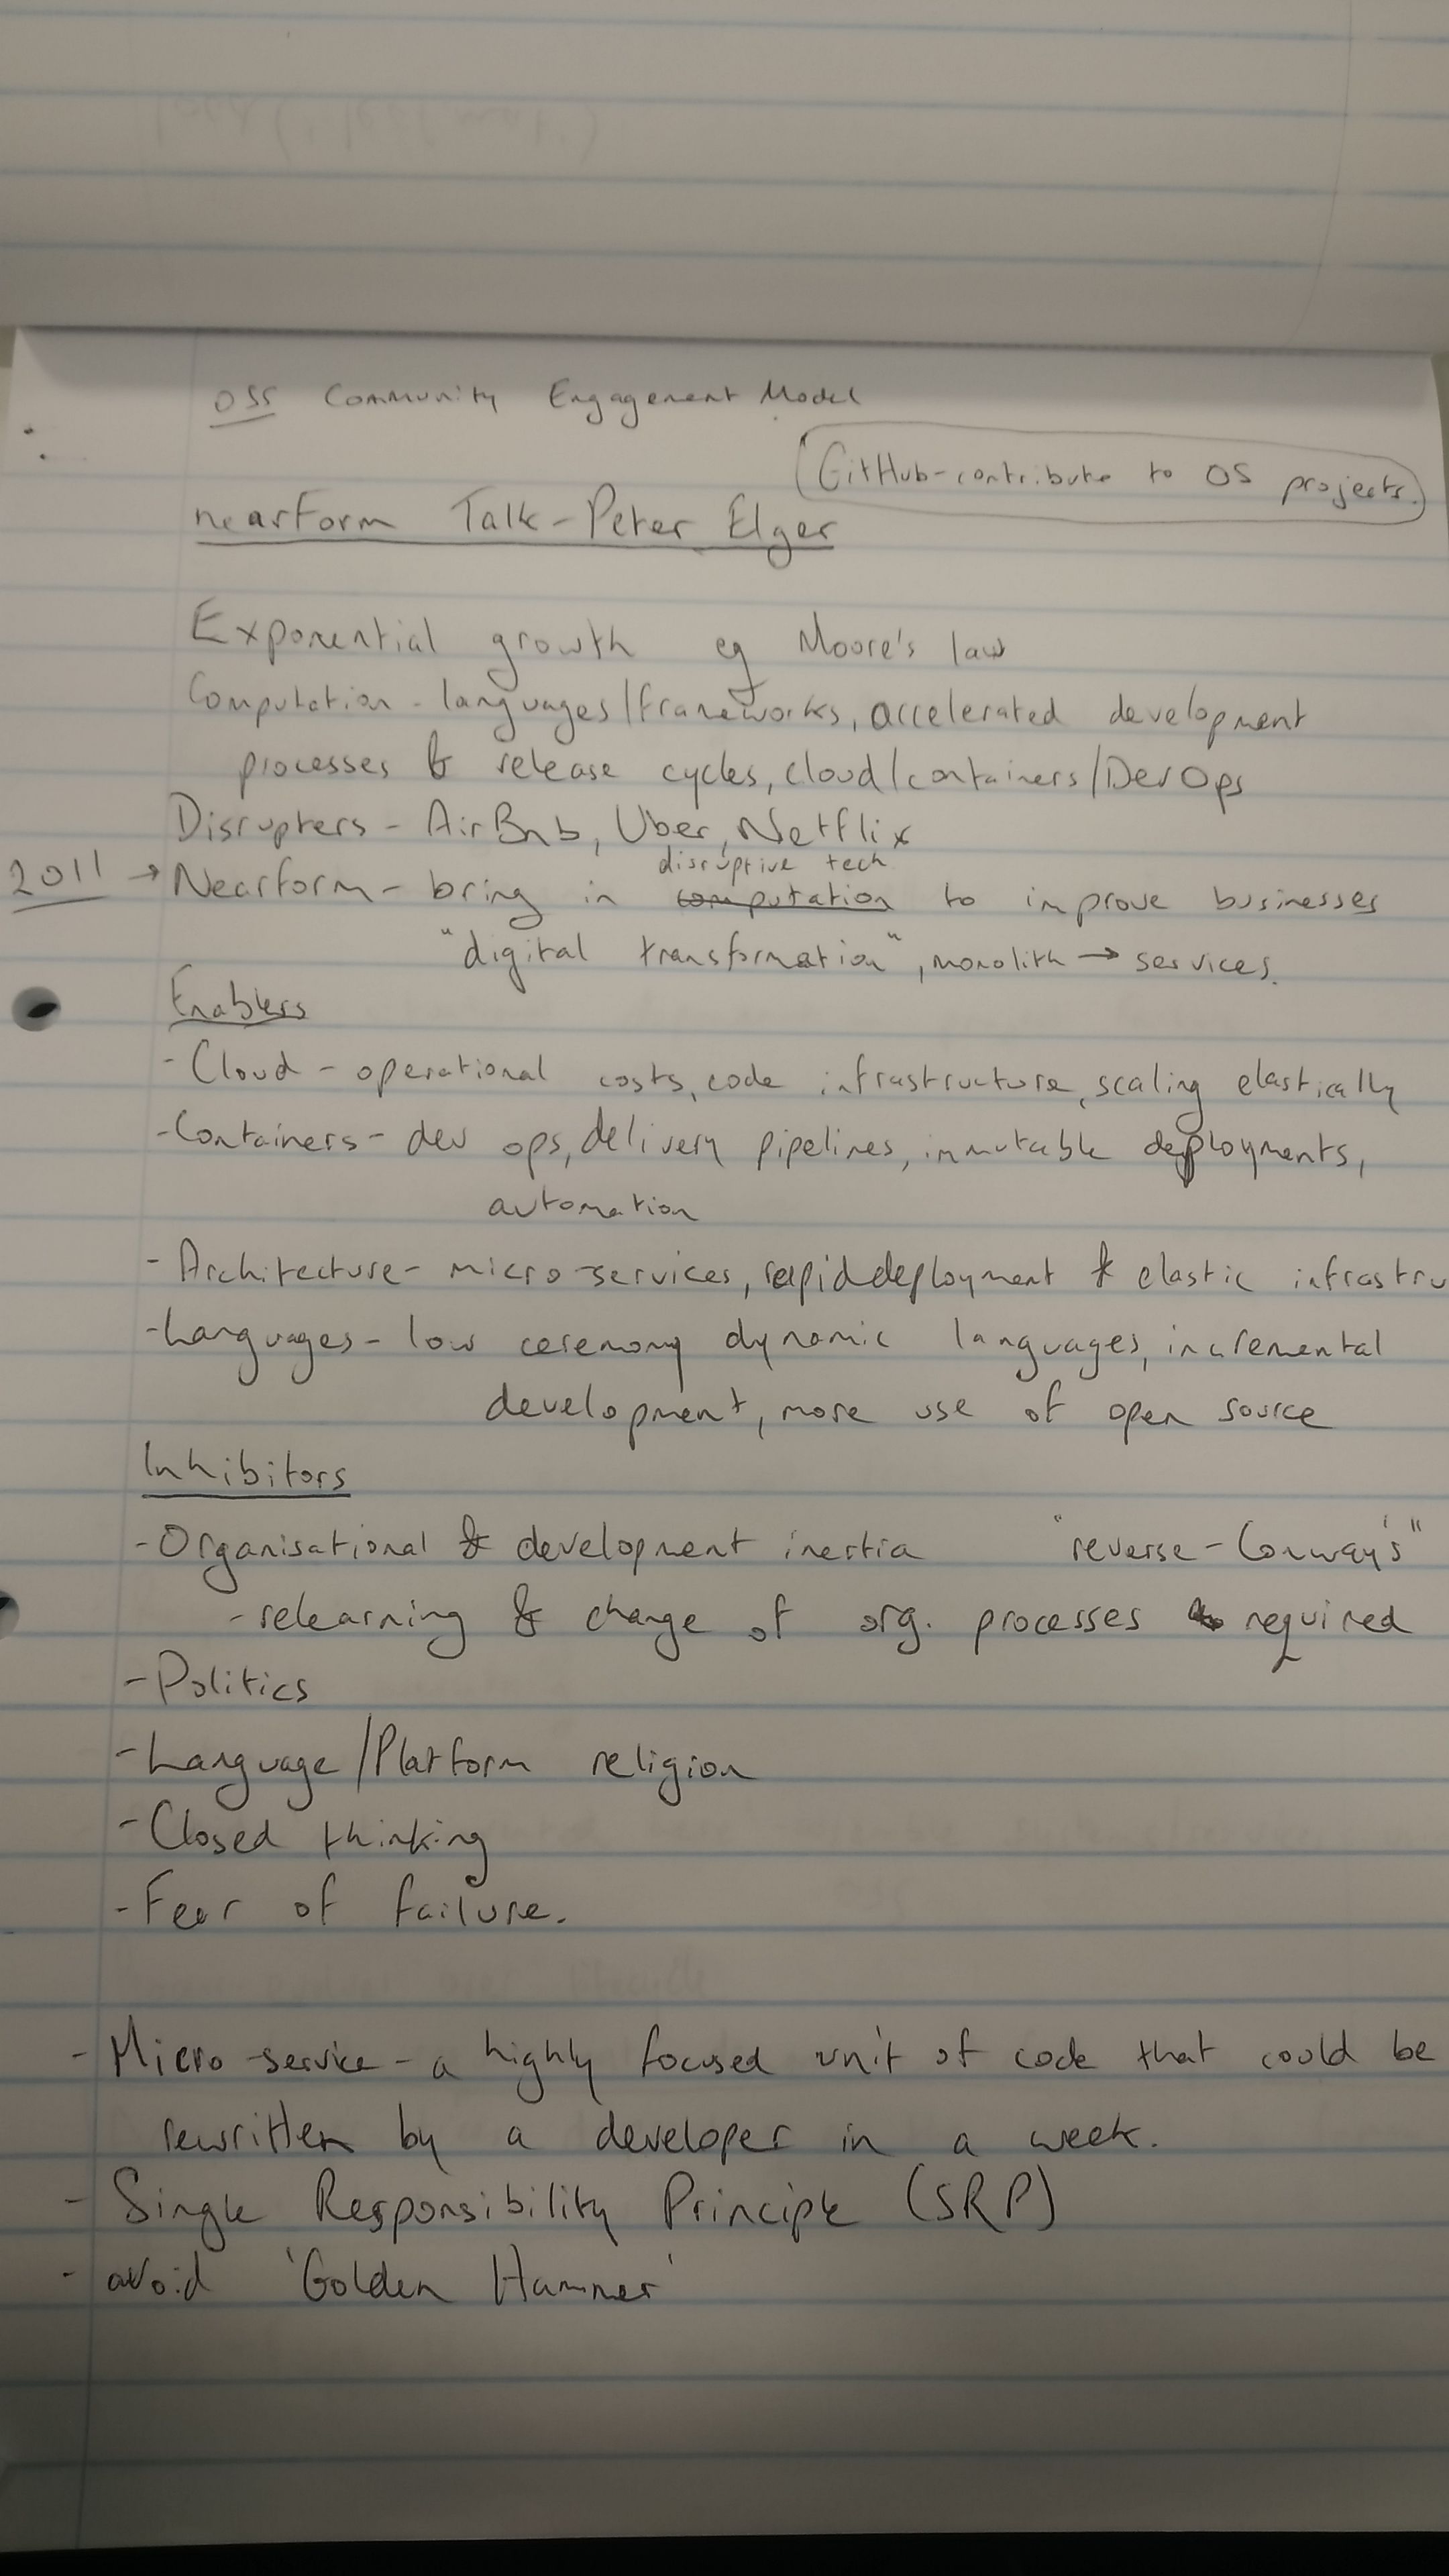 OSS Community Engagement Model
GitHub-contribute to OS projects.
nearForm Talk - Peter Elger
Exponential growth eg Moore's law
Computation - languages/frameworks, accelerated development
processes & release cycles, cloud/containers/DevOps
Disrupters - AirBnb, Uber, Netflix
disruptive tech
2011 → Nearform - bring in computation to improve businesses
"digital transformation", monolith → services.
Enablers
- Cloud - operational costs, code infrastructure, scaling elastically
- Containers - dev ops, delivery pipelines, immutable deployments,
automation
- Architecture - micro-services, rapid deployment & elastic infrastru
- Languages - low ceremony dynamic languages, incremental
development, more use of open source
Inhibitors
- Organisational & development inertia "reverse-Conway's"
- relearning & change of org. processes required
- Politics
- Language/Platform religion
- Closed thinking
- Fear of failure.
- Micro-service - a highly focused unit of code that could be
rewritten by a developer in a week.
- Single Responsibility Principle (SRP)
- avoid 'Golden Hammer'